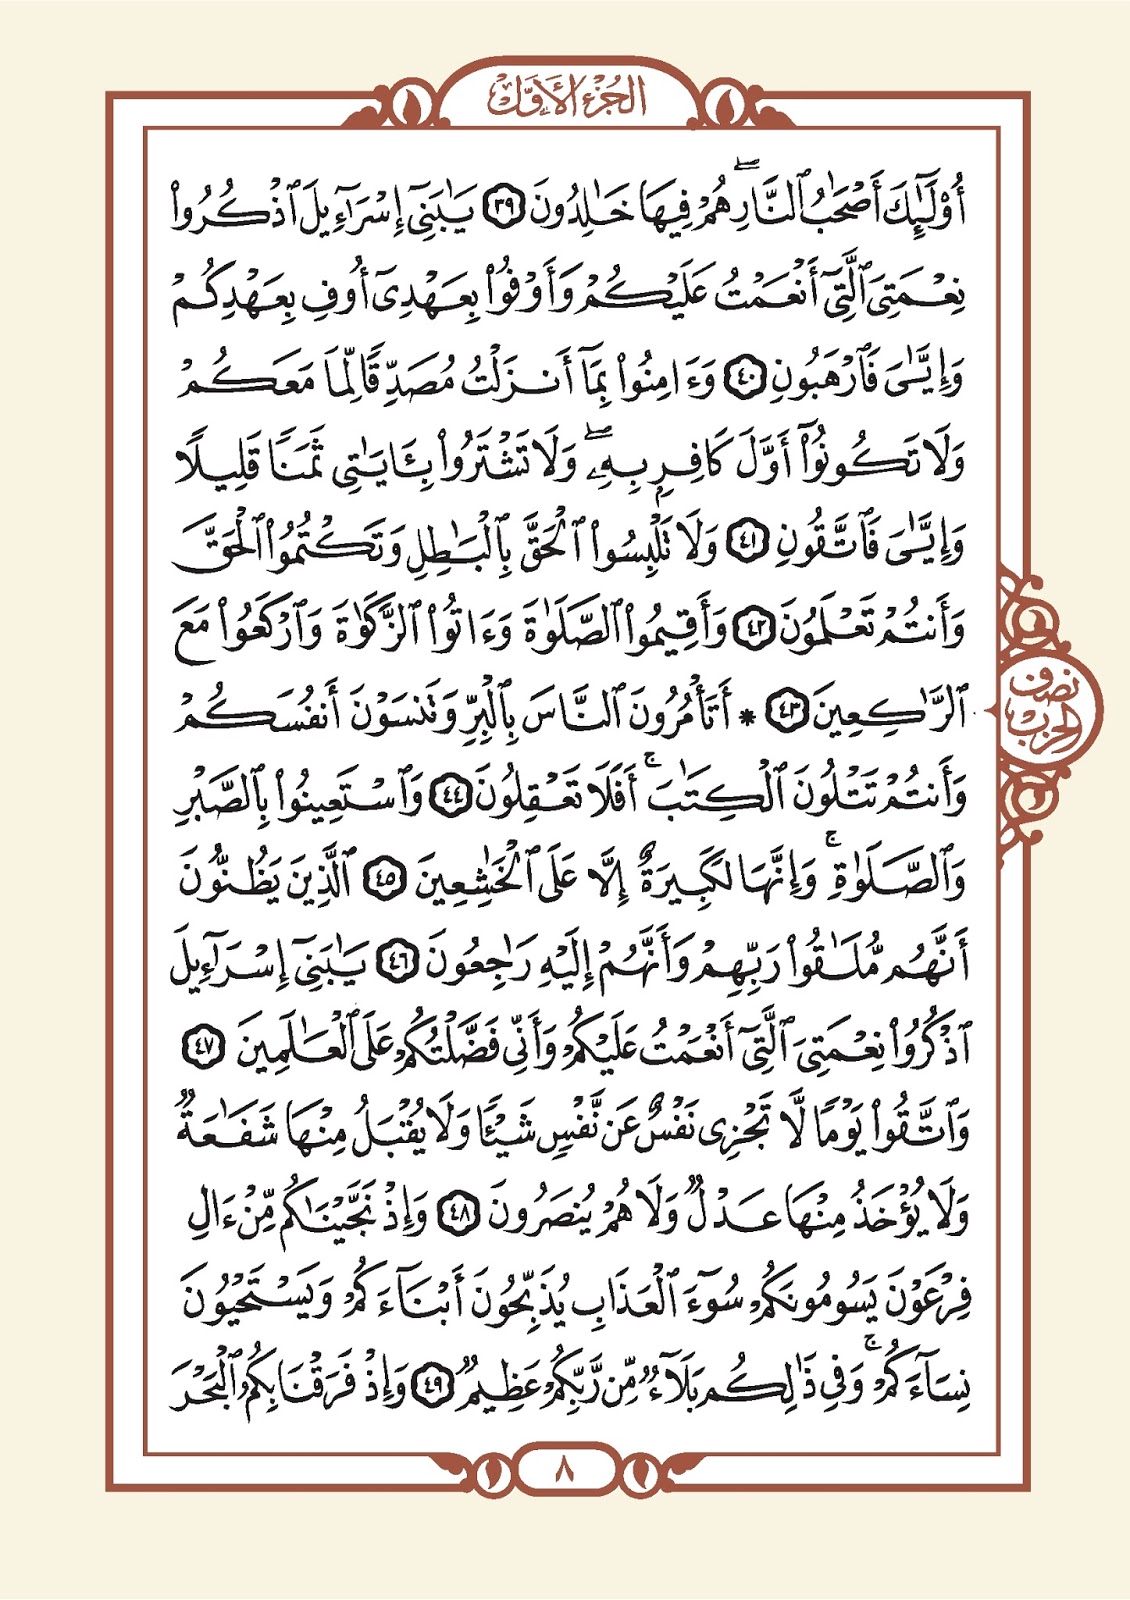 الجُزْءُ الأَوَّلُ
أُوْلَٰٓئِكَ أَصْحَٰبُ ٱلنَّارِۖ هُمْ فِيهَا خَٰلِدُونَ ٣٩ يَٰبَنِىٓ إِسْرَٰٓءِيلَ ٱذْكُرُواْ
نِعْمَتِىَ ٱلَّتِىٓ أَنْعَمْتُ عَلَيْكُمْ وَأَوْفُواْ بِعَهْدِىٓ أُوفِ بِعَهْدِكُمْ
وَإِيَّٰىَ فَٱرْهَبُونِ ٤٠ وَءَامِنُواْ بِمَآ أَنزَلْتُ مُصَدِّقًا لِّمَا مَعَكُمْ
وَلَا تَكُونُوٓاْ أَوَّلَ كَافِرِۭ بِهِۦۖ وَلَا تَشْتَرُواْ بِـَٔايَٰتِى ثَمَنًا قَلِيلًا
وَإِيَّٰىَ فَٱتَّقُونِ ٤١ وَلَا تَلْبِسُواْ ٱلْحَقَّ بِٱلْبَٰطِلِ وَتَكْتُمُواْ ٱلْحَقَّ
وَأَنتُمْ تَعْلَمُونَ ٤٢ وَأَقِيمُواْ ٱلصَّلَوٰةَ وَءَاتُواْ ٱلزَّكَوٰةَ وَٱرْكَعُواْ مَعَ
ٱلرَّٰكِعِينَ ٤٣ * أَتَأْمُرُونَ ٱلنَّاسَ بِٱلْبِرِّ وَتَنسَوْنَ أَنفُسَكُمْ
نصف
الحزب
وَأَنتُمْ تَتْلُونَ ٱلْكِتَٰبَۚ أَفَلَا تَعْقِلُونَ ٤٤ وَٱسْتَعِينُواْ بِٱلصَّبْرِ
وَٱلصَّلَوٰةِۚ وَإِنَّهَا لَكَبِيرَةٌ إِلَّا عَلَى ٱلْخَٰشِعِينَ ٤٥ ٱلَّذِينَ يَظُنُّونَ
أَنَّهُم مُّلَٰقُواْ رَبِّهِمْ وَأَنَّهُمْ إِلَيْهِ رَٰجِعُونَ ٤٦ يَٰبَنِىٓ إِسْرَٰٓءِيلَ
ٱذْكُرُواْ نِعْمَتِىَ ٱلَّتِىٓ أَنْعَمْتُ عَلَيْكُمْ وَأَنِّى فَضَّلْتُكُمْ عَلَى ٱلْعَٰلَمِينَ ٤٧
وَٱتَّقُواْ يَوْمًا لَّا تَجْزِى نَفْسٌ عَن نَّفْسٍ شَيْـًٔا وَلَا يُقْبَلُ مِنْهَا شَفَٰعَةٌ
وَلَا يُؤْخَذُ مِنْهَا عَدْلٌ وَلَا هُمْ يُنصَرُونَ ٤٨ وَإِذْ نَجَّيْنَٰكُم مِّنْ ءَالِ
فِرْعَوْنَ يَسُومُونَكُمْ سُوٓءَ ٱلْعَذَابِ يُذَبِّحُونَ أَبْنَآءَكُمْ وَيَسْتَحْيُونَ
نِسَآءَكُمْۚ وَفِى ذَٰلِكُم بَلَآءٌ مِّن رَّبِّكُمْ عَظِيمٌ ٤٩ وَإِذْ فَرَقْنَا بِكُمُ ٱلْبَحْرَ
٨